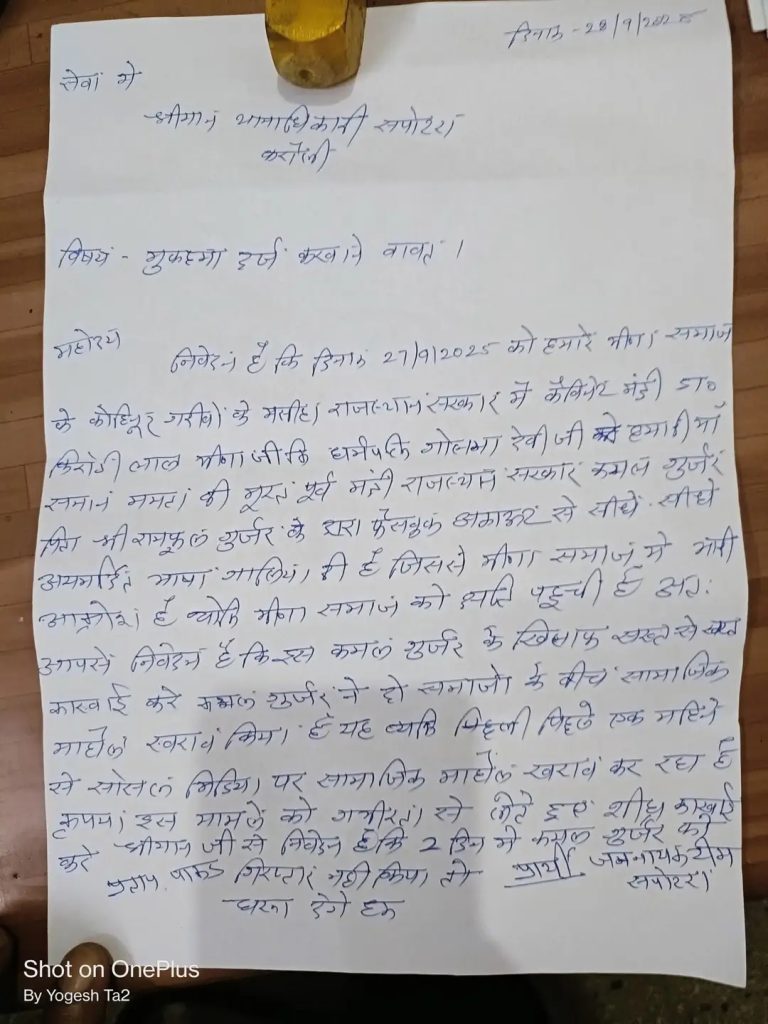 दिनांक - 28/9/2025
सेवा में
श्रीमान थानाधिकारी सपोटरा
करौली
विषय - मुकदमा दर्ज करवाने बावत ।
महोदय
निवेदन है कि दिनांक 27/9/2025 को हमारे मीणा समाज
के कोहिनूर गरीबों के मसीहा राजस्थान सरकार में कैबिनेट मंत्री डा०
किरोडी लाल मीणा जी कि धर्मपत्नि गोलमा देवी जी को हमारी माँ
समान ममता की मूरत पूर्व मंत्री राजस्थान सरकार कमल गुर्जर
पिता श्री रामफूल गुर्जर के द्वारा फेसबुक अकाऊंट से सीधे सीधे
अमर्यादित भाषा गालिया दी है जिससे मीणा समाज में भारी
आक्रोश है क्योकि मीणा समाज को क्षति पहुची है अत:
आपसे निवेदन है कि इस कमल गुर्जर के खिलाफ सख्त से सख्त
कारवाई करे कमल गुर्जर ने दो समाजो के बीच सामाजिक
माहौल खराब किया है यह व्यक्ति पिछली पिछले एक महिने
से सोसल मिडिया पर सामाजिक माहौल खराब कर रहा है
कृपया इस मामले को गंभीरता से लेते हुए शीघ्र कारवाई
करे श्रीमान जी से निवेदन है कि 2 दिन में कमल गुर्जर को
गिरप्तार नही किया तो प्रार्थी जननायक टीम
धरना देंगे हम सपोटरा
Shot on OnePlus
By Yogesh Ta2